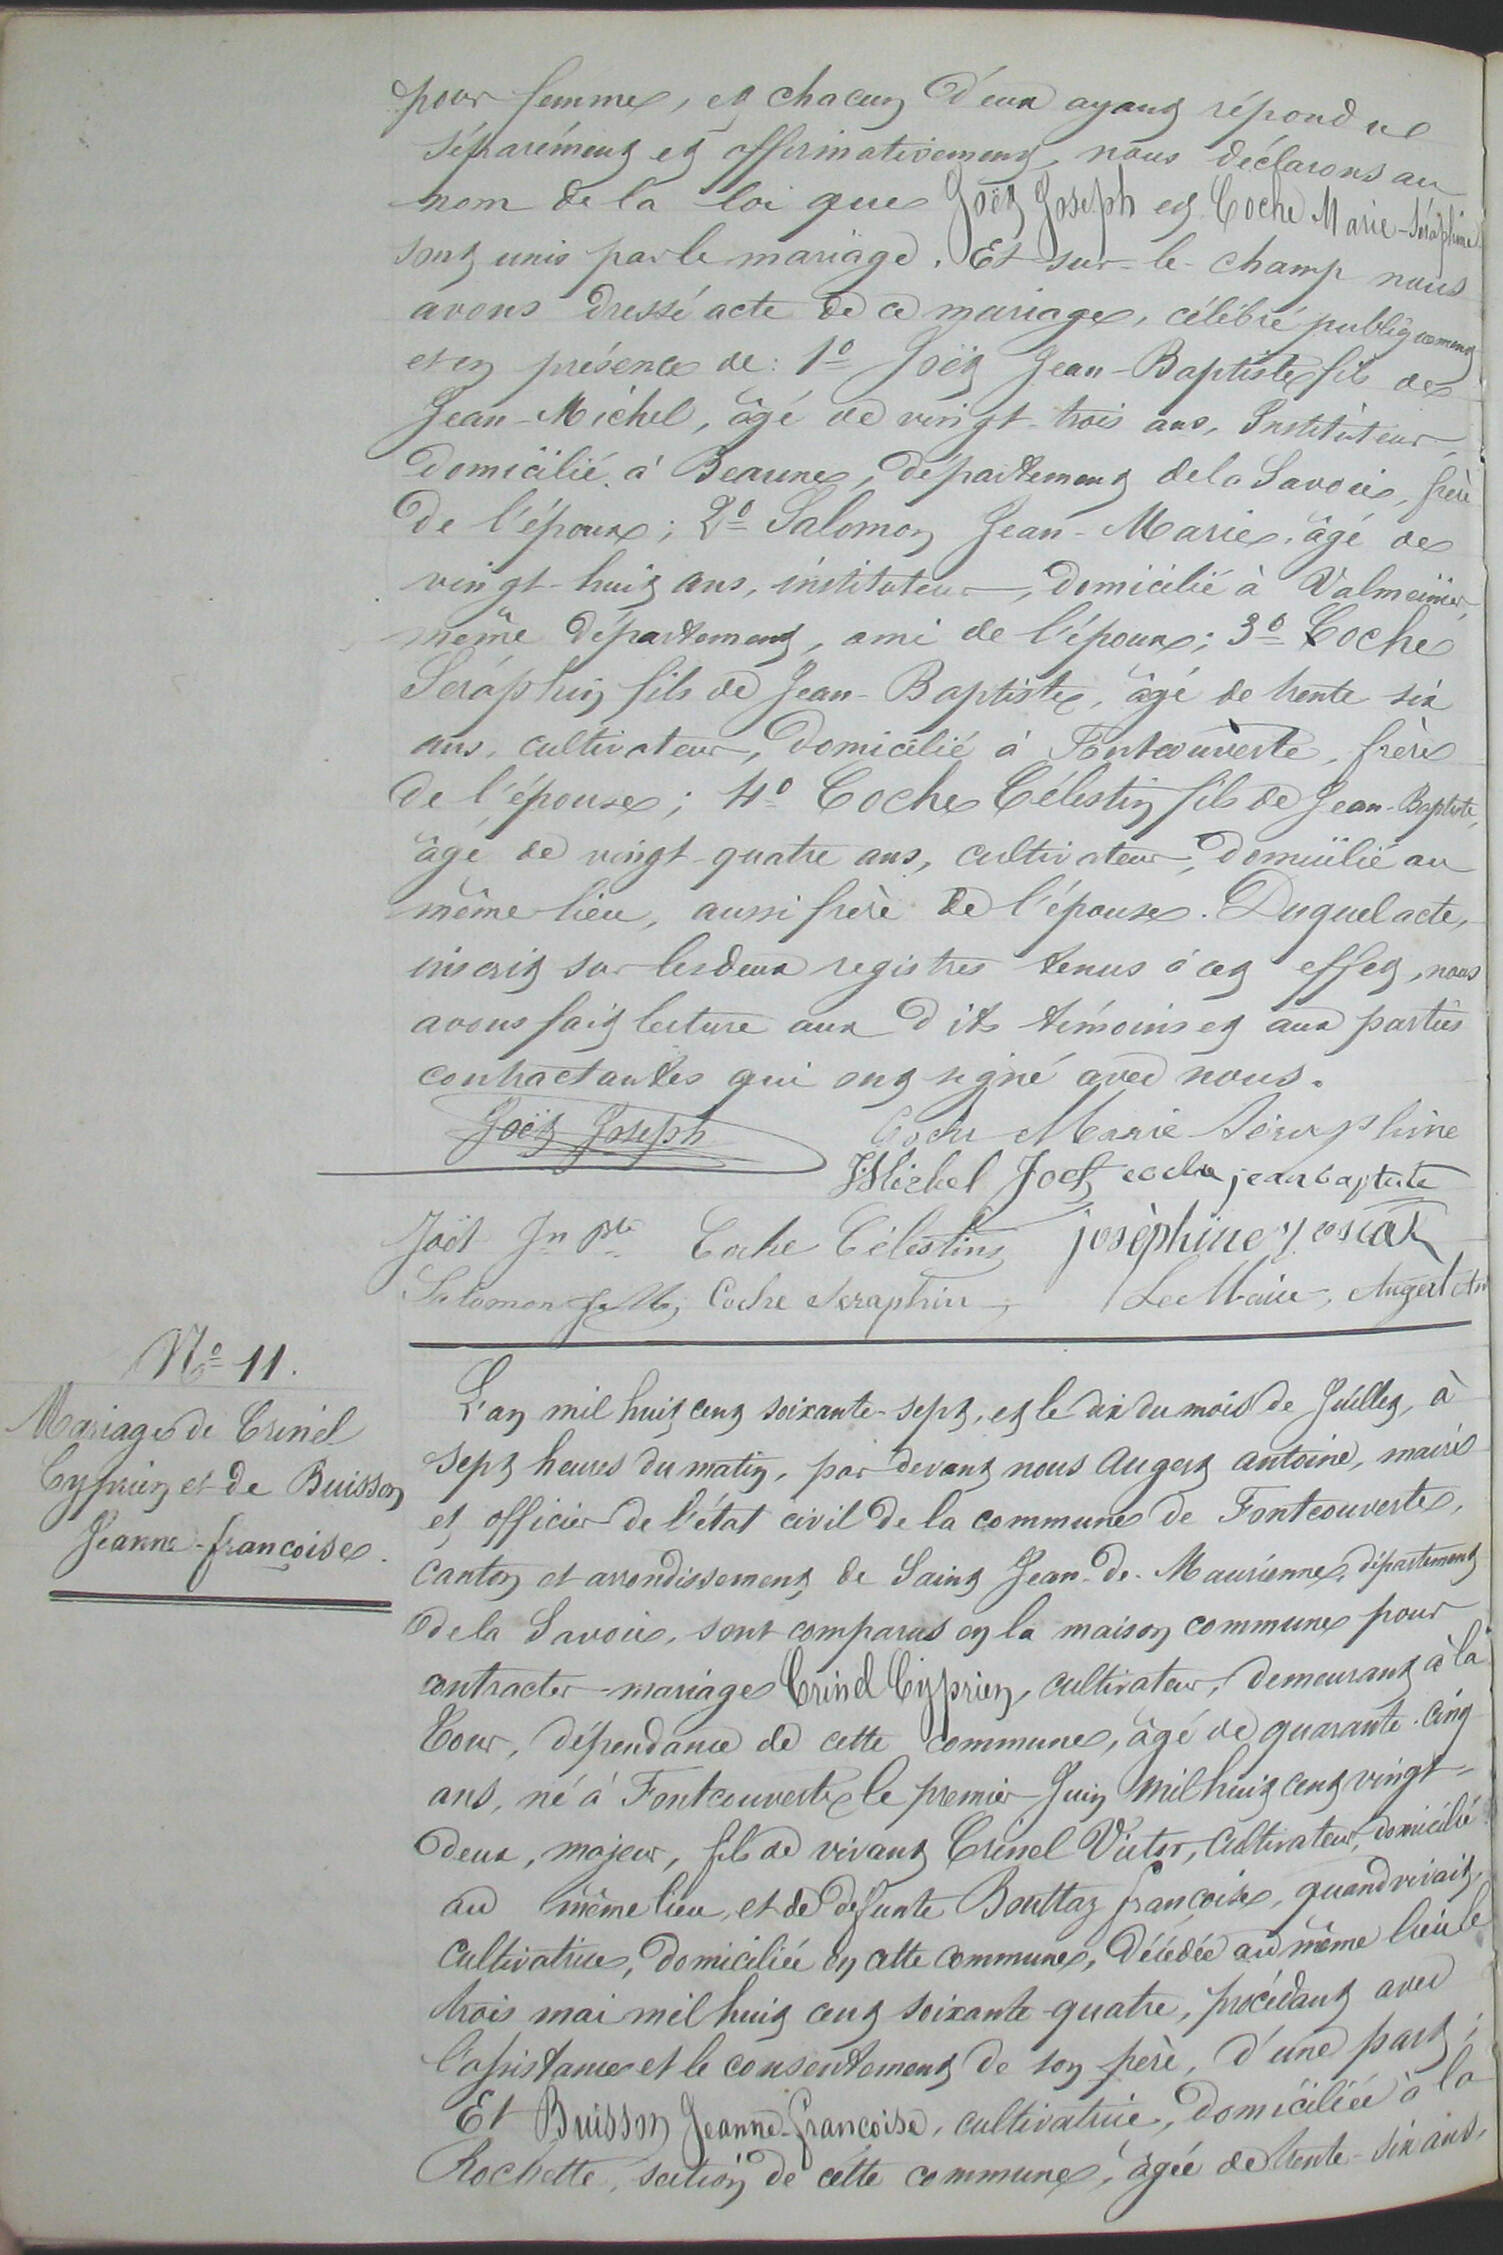 pour femme, et chacun d'eux ayant répondu
séparément et affirmativement, nous déclarons au
nom de la loi que Joët Joseph et Coche Marie-Séraphine
sont unis par le mariage. Et sur-le-champ nous
avons dressé acte de ce mariage, célébré publiquement
et en présence de: 1º Joët Jean-Baptiste fils de
Jean-Michel, âgé de vingt-trois ans, Instituteur
domicilié à Beaune, département de la Savoie, frère
de l'époux; 2º Salomon Jean-Marie, âgé de
vingt-huit ans, instituteur, domicilié à Valmeinier,
même département, ami de l'époux; 3º Coche
Séraphin fils de Jean-Baptiste, âgé de trente six
ans, cultivateur, domicilié à Fontcouverte, frère
de l'épouse; 4º Coche Célestin fils de Jean-Baptiste,
âgé de vingt-quatre ans, cultivateur, domicilié au
même lieu, aussi frère de l'épouse. Duquel acte,
inscrit sur les deux registres tenus à cet effet, nous
avons fait lecture aux dits témoins et aux parties
contractantes qui ont signé avec nous.
Joët Joseph Coche Marie Séraphine
Michel Joët coche jean baptiste
Joët Jn Bte Coche Célestin joséphine
Salomon J. M. Coche Seraphin Le Maire, Augert An
Nº 11.
Mariage de Trinel
Cyprien et de Buisson
Jeanne-françoise.
L'an mil huit cent soixante-sept, et le dix du mois de Juillet, à
sept heures du matin, par devant nous Augert antoine, maire
et officier de l'état civil de la commune de Fontcouverte,
canton et arrondissement de Saint Jean-de-Maurienne, département
de la Savoie, sont comparus en la maison commune pour
contracter mariage Crinel Cyprien, cultivateur, demeurant à la
Tour, dépendance de cette commune, âgé de quarante-cinq
ans, né à Fontcouverte le premier Juin mil huit cent vingt-
deux, majeur, fils de vivant Crinel Victor, Cultivateur, domicilié
au même lieu, et de défunte Bouttaz françoise, quand vivait,
cultivatrice, domiciliée en cette commune, décédée au même lieu le
trois mai mil huit cent soixante-quatre, procédant avec
l'assistance et le consentement de son père, d'une part;
Et Buisson Jeanne-françoise, cultivatrice, domiciliée à la
Rochette, section de cette commune, âgée de trente-six ans,